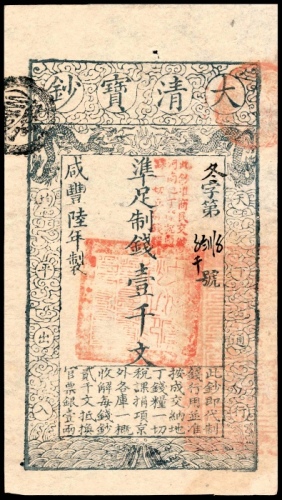 大清寶鈔
天下通行
均平出入
冬字第千號
準足制錢壹千文
咸豐陸年製
此鈔即代制
錢行用並准
按成交納地
丁錢糧一切
稅課捐項京
外各庫一概
收解每錢鈔
貳千文抵換
官票銀壹兩